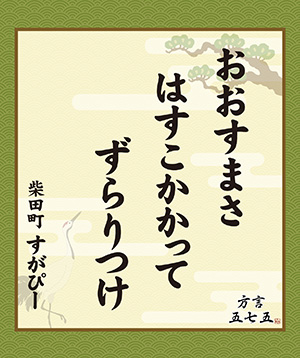 おおすまさ
はすこかかって
ずらりつけ
柴田町 すがぴー
方言
五七五